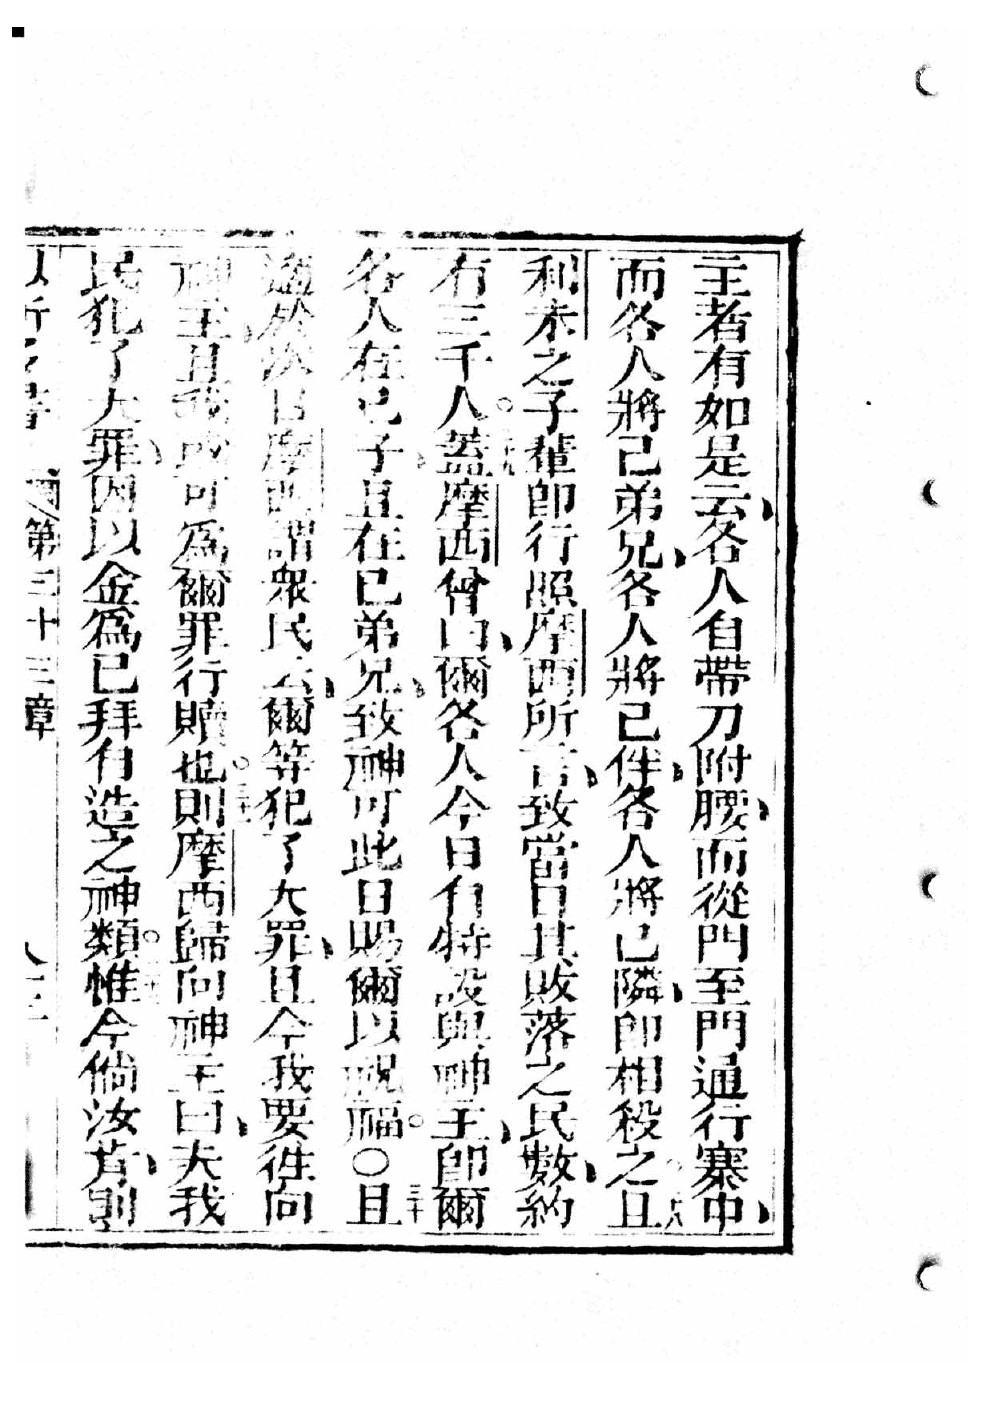 主者有如是云、各人自帶刀附腰、而從門至門通行寨中、
而各人將己弟兄、各人將己伴、各人將己隣、即相殺之。廿八且
利未之子輩即行照摩西所言、致當日其敗落之民數、約
有三千人。廿九蓋摩西曾曰、爾各人今日自特設與神主、即爾
各人在己子、且在己弟兄、致神可此日賜爾以祝福。〇三十且
適於次日摩西謂衆民云、爾等犯了大罪、且今我要徃向
神主、且我或可為爾罪行贖也。三一則摩西歸向神主曰、夫我
民犯了大罪、因以金為己拜自造之神類。惟今倘汝肯、則
第三十三章